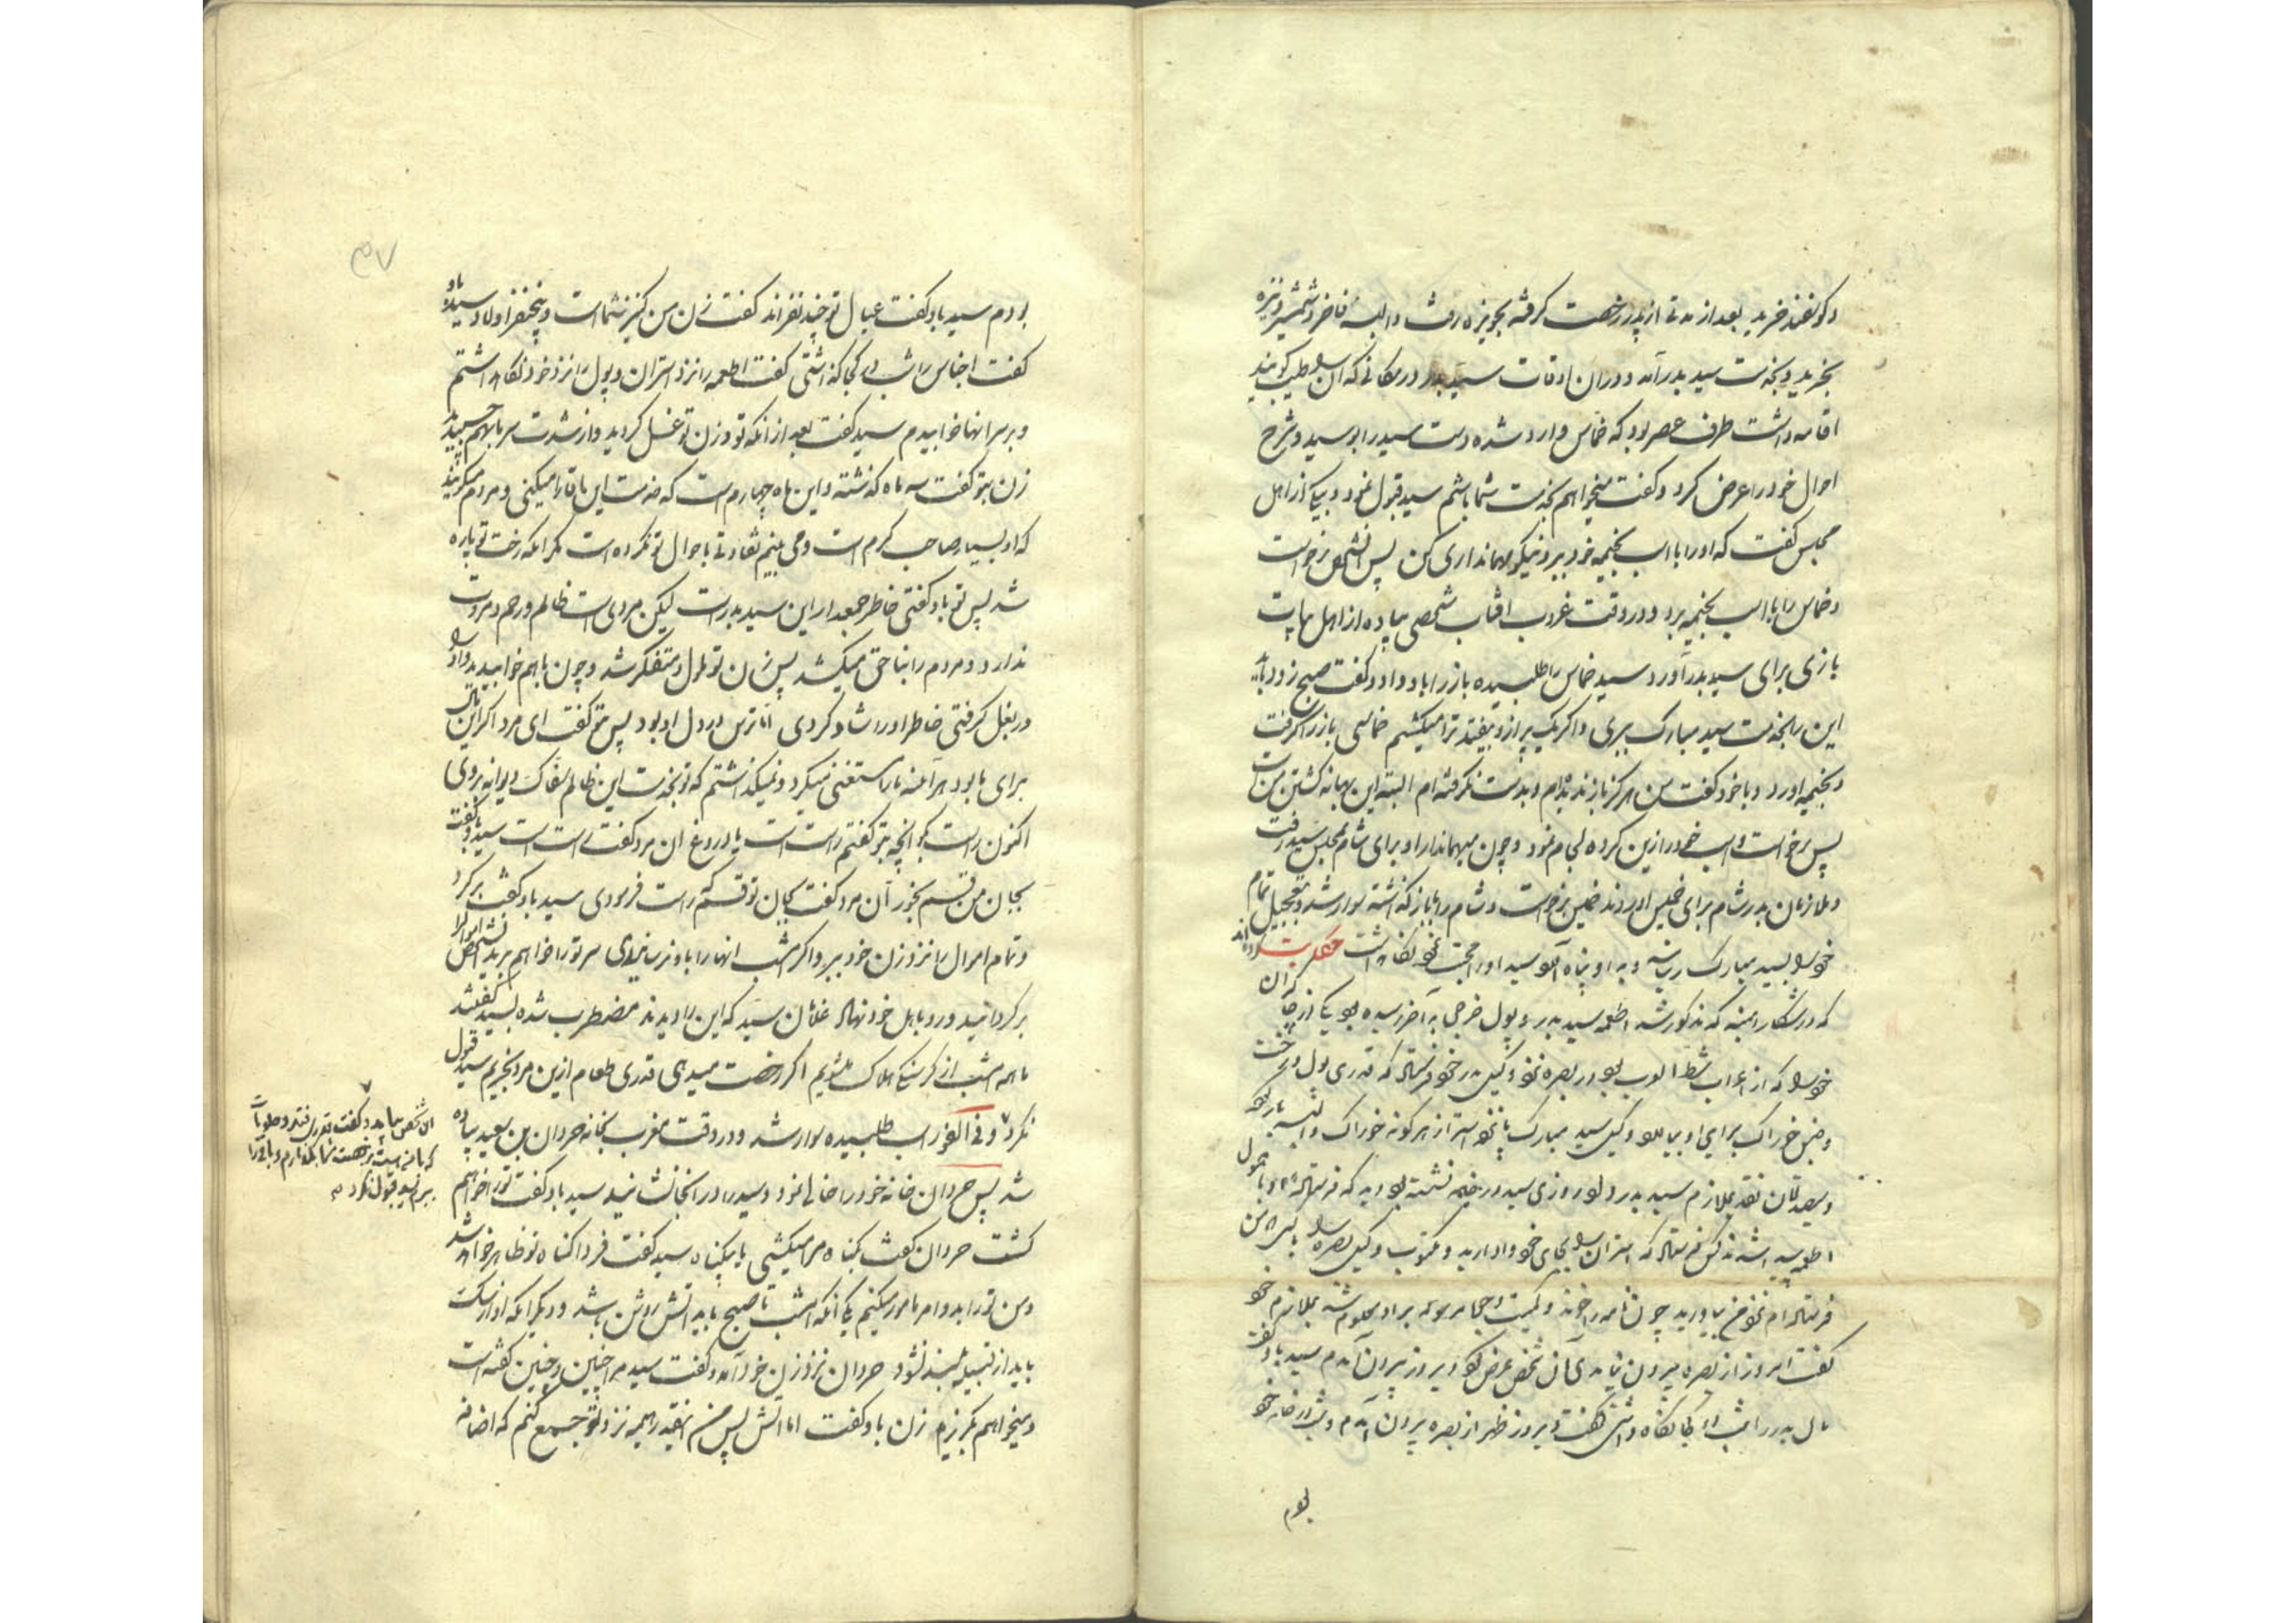 و کوسفند خرید بعد از مدتی از پدر رخصت کرفته بحویزه رفت و البسه فاخر و شمشیر و نیزه
بخرید و بخدمت سید بدر آمد و در آن اوقات سید بدر در مکانی که آن را طیب کویند
اقامه داشت طرف عصر بود که خماس وارد شده دست سید را بوسید و شرح
احوال خود را عرض کرد و کفت میخواهم بخدمت شما باشم سید قبول نمود و بیکی از اهل
مجلس کفت که او را با اسب بخیمه خود ببر و نیکو مهمانداری کن پس آنشخص برخواست
و خماس را با اسب بخیمه برد و در وقت غروب آفتاب شخصی پیاده از اهل
بازی برای سید بدر آورد سید خماس را طلبیده باز را باو داد و کفت صبح زود باید
این را بخدمت سید مبارک ببری و اکر یک پر ازو بیفتد ترا میکشم خماس باز را کرفت
و بخیمه آورد و با خود کفت من هرکز باز ندیده‌ام و بدست نکرفته ام البته این بهانه کشتن من است
پس برخواست و اسب خود را زین کرده لجام نمود و چون میهماندار او برای شام بمجلس سید رفت
و ملازمان بدر شام برای خمیس آوردند خمیس برخواست و شام را با باز کذاشته سوار شد و بتعجیل تمام
خود را بسید مبارک رسانید و به او پناه آورد سید او را بجهت خود نکاه داشت حکایت
که در شکار امنیه که مذکور شد اطعمه سید بدر و پول خرجی به آخر رسیده بود یکی از
خود را که از اعراب شط العرب بود در بصره نزد وکیل پدر خود فرستاد که قدری پول و رخت
و جنس خوراک برای او بیاورد وکیل سید مبارک پانزده استر از هر کونه خوراک و البسه بار کرد
و سیصد تومان نقد بملازم سید بدر داد روزی سید در خیمه نشسته بود دید که فرستاده او با حمول
اطعمه
فرستاده ام نزد من بیاورید چون نامه را خواند و کمیت و جمله مرسوله براو معلوم شد بملازم خود
کفت امروز از بصره بیرون آمدی آن شخص عرض کرد دیروز بیرون آمدم سید باو کفت
مال بدر را شب در کجا نکاه داشتی کفت دیروز ظهر از بصره بیرون آمدم و شب در خانه خود
بودم
۴۷
بودم سید باو کفت عیال تو چند نفراند کفت زن من کنیز شماست و پنج نفر اولاد سید باو
کفت اجناس را شب در کجا کذاشتی کفت اطعمه را نزد استران و پول را نزد خود نکاه داشتم
و بر سر آنها خوابیدم سید کفت بعد از آنکه تو و زن تو غسل کردید و از شدت سرما بهم چسبیدید
زن بتو کفت سه ماه کذشته و این ماه چهارم است که خدمت این آقا را میکنی و مردم میکویند
که او بسیار صاحب کرم است و می بینم تفاوتی باحوال تو نکرده است مکر آنکه رخت تو پاره
شد پس تو باو کفتی خاطر جمعدار این سید بدر است لیکن مردی است ظالم و رحم و مروت
ندارد و مردم را بناحق میکشد پس زن تو ملول و متفکر شد و چون باهم خوابیدید و او را
در بغل کرفتی خاطر او را شاد کردی اما ترس در دل او بود پس بتو کفت ای مرد اکر این مال
برای ما بود هر آینه ما را مستغنی میکرد و نمیکذاشتم که تو بخدمت این ظالم سفاک دیوانه بروی
اکنون راست بکو آنچه بتو کفتم راست است یا دروغ آن مرد کفت راست است سید باو کفت
بجان من قسم بخور آن مرد کفت بجان تو قسم که راست فرمودی سید باو کفت برکرد
و تمام اموال را نزد زن خود ببر و اکر امشب آنها را باو نرسانیدی سر تو را خواهم برید آنشخص اموال را
برکردانید و رو باهل خود نهاد غلامان سید که این را دیدند مضطرب شده بسید کفتند
ما همه امشب از کرسنکی هلاک میشویم اکر رخصت میدهی قدری طعام ازین مرد بخریم سید قبول
نکرد و فی الفور اسب طلبیده سوار شد و در وقت مغرب بخانه حردان بن سعید پیاده
شد پس حردان خانه خود را خالی نمود و سید را در آنجا نشانید سید باو کفت تو را خواهم
کشت حردان کفت بکناه مرا میکشی یا بیکناه سید کفت فردا کناه تو ظاهر خواهد شد
و من تو را بدو امر مامور میکنم یکی آنکه امشب تا صبح باید آتش روشن باشد و دیکر آنکه آواز سک
باید از قبیله بلند نشود حردان نزد زن خود آمد و کفت سید مرا چنین و چنین کفته است
و میخواهم بکریزم زن باو کفت اما آتش پس من آنقدر هیمه نزد تو جمع کنم که اضافه